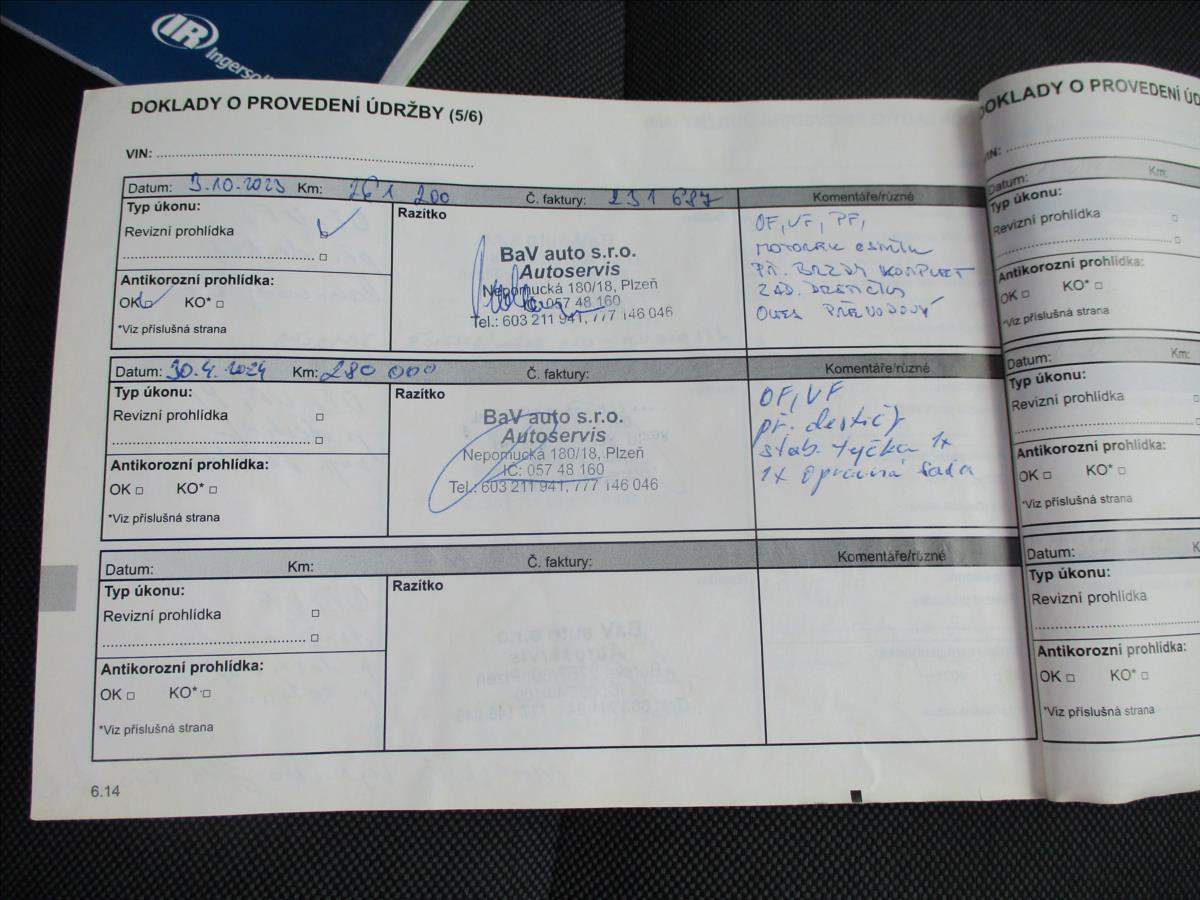 IR
Ingersoll
DOKLADY O PROVEDENÍ ÚDRŽBY (5/6)
VIN:
Datum: 3.10.2023 Km: 261 200 Č. faktury: 231 687 Komentáře/různé
Typ úkonu:
Revizní prohlídka
Antikorozní prohlídka:
OK KO*
*Viz příslušná strana
Razítko
BaV auto s.r.o.
Autoservis
Nepomucká 180/18, Plzeň
IČ: 057 48 160
Tel.: 603 211 941, 777 146 046
OF, VF, PF,
PŘ. BRZDY KOMPLET
OLEJ PŘEVODOVÝ
Datum: 30.4.2024 Km: 280 000 Č. faktury: Komentáře/různé
Typ úkonu:
Revizní prohlídka
Antikorozní prohlídka:
OK KO*
*Viz příslušná strana
Razítko
BaV auto s.r.o.
Autoservis
Nepomucká 180/18, Plzeň
IČ: 057 48 160
Tel.: 603 211 941, 777 146 046
OF, VF
př. destičky
stab. tyčka 1x
1x opravná sada
Datum: Km: Č. faktury: Komentáře/různé
Typ úkonu:
Revizní prohlídka
Antikorozní prohlídka:
OK KO*
*Viz příslušná strana
Razítko
6.14
DOKLADY O PROVEDENÍ ÚD
VIN:
Datum: Km:
Typ úkonu:
Revizní prohlídka
Antikorozní prohlídka:
OK KO*
*Viz příslušná strana
Datum: Km:
Typ úkonu:
Revizní prohlídka
Antikorozní prohlídka:
OK KO*
*Viz příslušná strana
Datum: K
Typ úkonu:
Revizní prohlídka
Antikorozní prohlídka:
OK KO*
*Viz příslušná strana